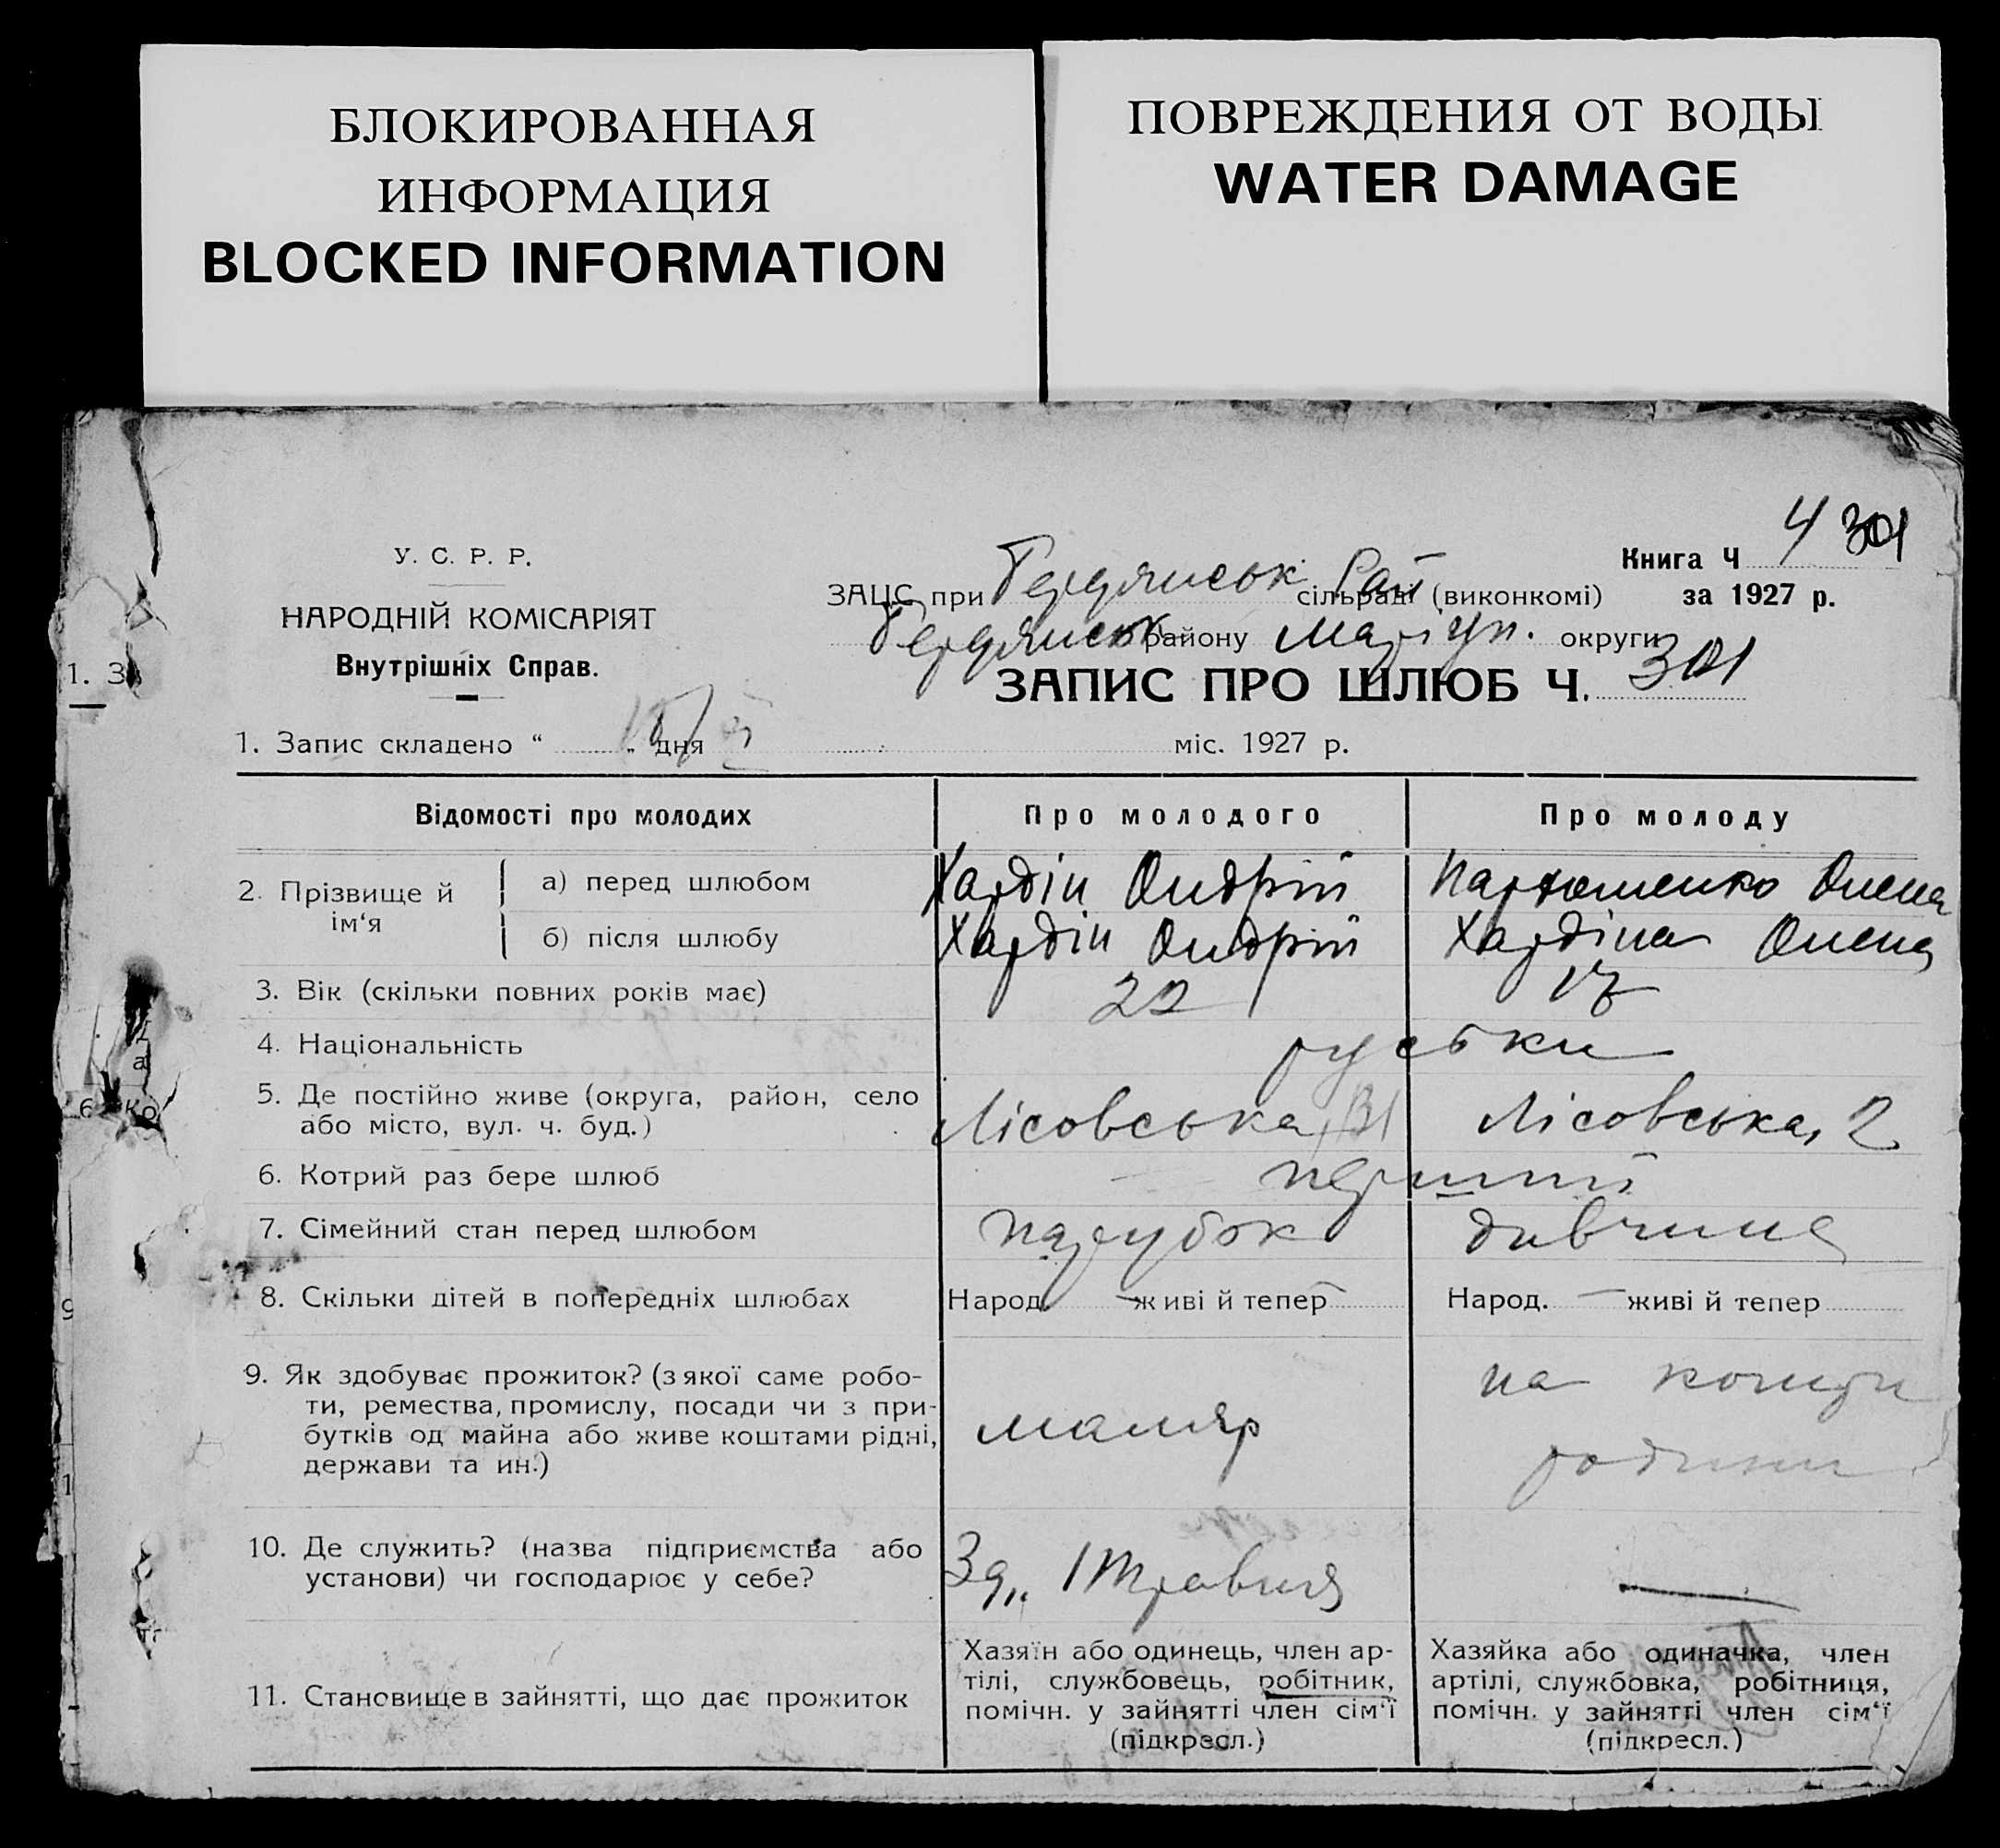 БЛОКИРОВАННАЯ
ИНФОРМАЦИЯ
BLOCKED INFORMATION
ПОВРЕЖДЕНИЯ ОТ ВОДЫ
WATER DAMAGE
У. С. Р. Р.
НАРОДНІЙ КОМІСАРІЯТ
Внутрішніх Справ.
Книга Ч 4 301
ЗАЦС при Бердянськ Рай сільраді (виконкомі) за 1927 р.
Бердянськ району Маріуп. округи
ЗАПИС ПРО ШЛЮБ Ч. 301
1. З
1. Запис складено “ „ дня міс. 1927 р.
Відомості про молодих Про молодого Про молоду
2. Прізвище й ім‘я
а) перед шлюбом Хардін Андрій Пархоменко Олена
б) після шлюбу Хардін Андрій Хардіна Олена
3. Вік (скільки повних років має) 22 17
4. Національність руськи
5. Де постійно живе (округа, район, село або місто, вул. ч. буд.) Лісовська, 31 Лісовська, 2
6. Котрий раз бере шлюб перший
7. Сімейний стан перед шлюбом парубок дивчина
8. Скільки дітей в попередніх шлюбах Народ. — живі й тепер Народ. — живі й тепер
9. Як здобуває прожиток? (з якої саме робо-
ти, ремества, промислу, посади чи з при-
бутків од майна або живе коштами рідні,
держави та ин.)
маляр
на кошти
родини
10. Де служить? (назва підприємства або
установи) чи господарює у себе?
Зд,, 1 Травня —
11. Становище в зайнятті, що дає прожиток
Хазяїн або одинець, член ар-
тілі, службовець, робітник,
помічн. у зайнятті член сім‘ї
(підкресл.)
Хазяйка або одиначка, член
артілі, службовка, робітниця,
помічн. у зайнятті член сім‘ї
(підкресл.)